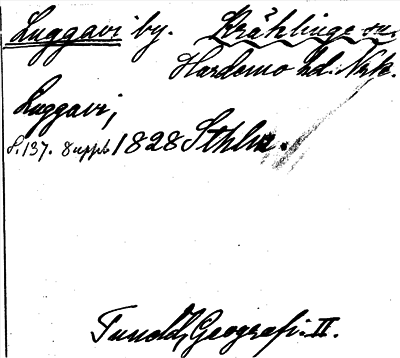 Luggavi by. Kräklinge sn.
Hardemo hd. Nrk.
Luggavi,
S. 137. 8 uppl. 1828 Sthlm.
Tuneld, Geografi. II.